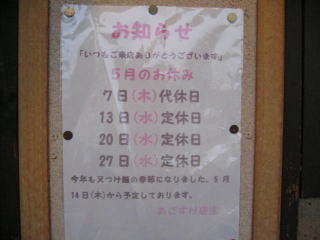 お知らせ
「いつもご来店ありがとうございます」
5月のお休み
7日(木)代休日
13日(水)定休日
20日(水)定休日
27日(水)定休日
今年も又つけ麺の季節になりました、5月
14日(木)から予定しております。
あごすけ店主